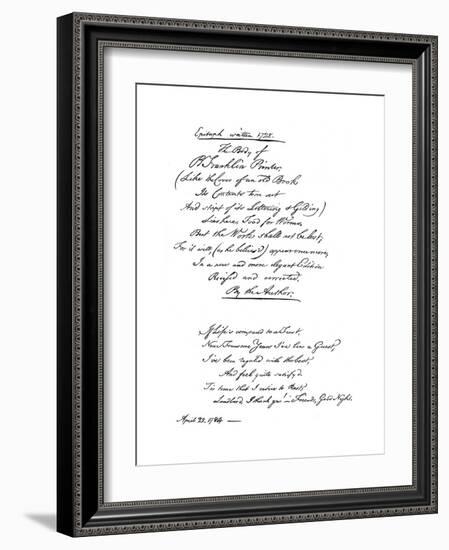 Epitaph written 1728.
The Body of
B Franklin Printer,
(Like the Cover of an old Book
Its Contents torn out
And stript of its Lettering & Gilding)
Lies here, Food for Worms.
But the Work shall not be lost;
For it will, (as he believ'd) appear once more,
In a new and more elegant Edition
Revised and corrected,
By the Author.
If Life's compared to a Feast,
Near Fourscore Years I've been a Guest,
I've been regaled with the best,
And feel quite satisfy'd.
'Tis time that I retire to Rest;
Landlord, I thank ye! Friends, Good Night.
April 22. 1784